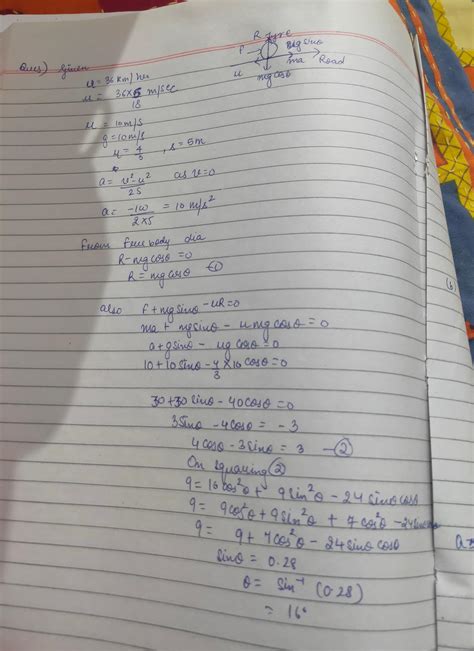 R Tyre
F mg sinθ
ma Road
u mg cosθ
Ques) Given
u = 36 km/hrs
u = 36×5/18 m/sec
u = 10 m/s
g = 10 m/s
μ = 4/3, s = 5m
a = v²-u²/2S as v=0
a = -100/2×5 = 10 m/s²
From free body dia
R - mg cosθ = 0
R = mg cosθ ①
also f + mg sinθ - μR = 0
ma + mg sinθ - μ mg cosθ = 0
a + g sinθ - μg cosθ = 0
10 + 10 sinθ - 4/3 × 10 cosθ = 0
30 + 30 sinθ - 40 cosθ = 0
3 sinθ - 4 cosθ = -3
4 cosθ - 3 sinθ = 3 — ②
On squaring ②
9 = 16 cos²θ + 9 sin²θ - 24 sinθ cosθ
9 = 9 cos²θ + 9 sin²θ + 7 cos²θ - 24 sinθ cosθ
9 = 9 + 7 cos²θ - 24 sinθ cosθ
sinθ = 0.28
θ = sin⁻¹ (0.28)
= 16°